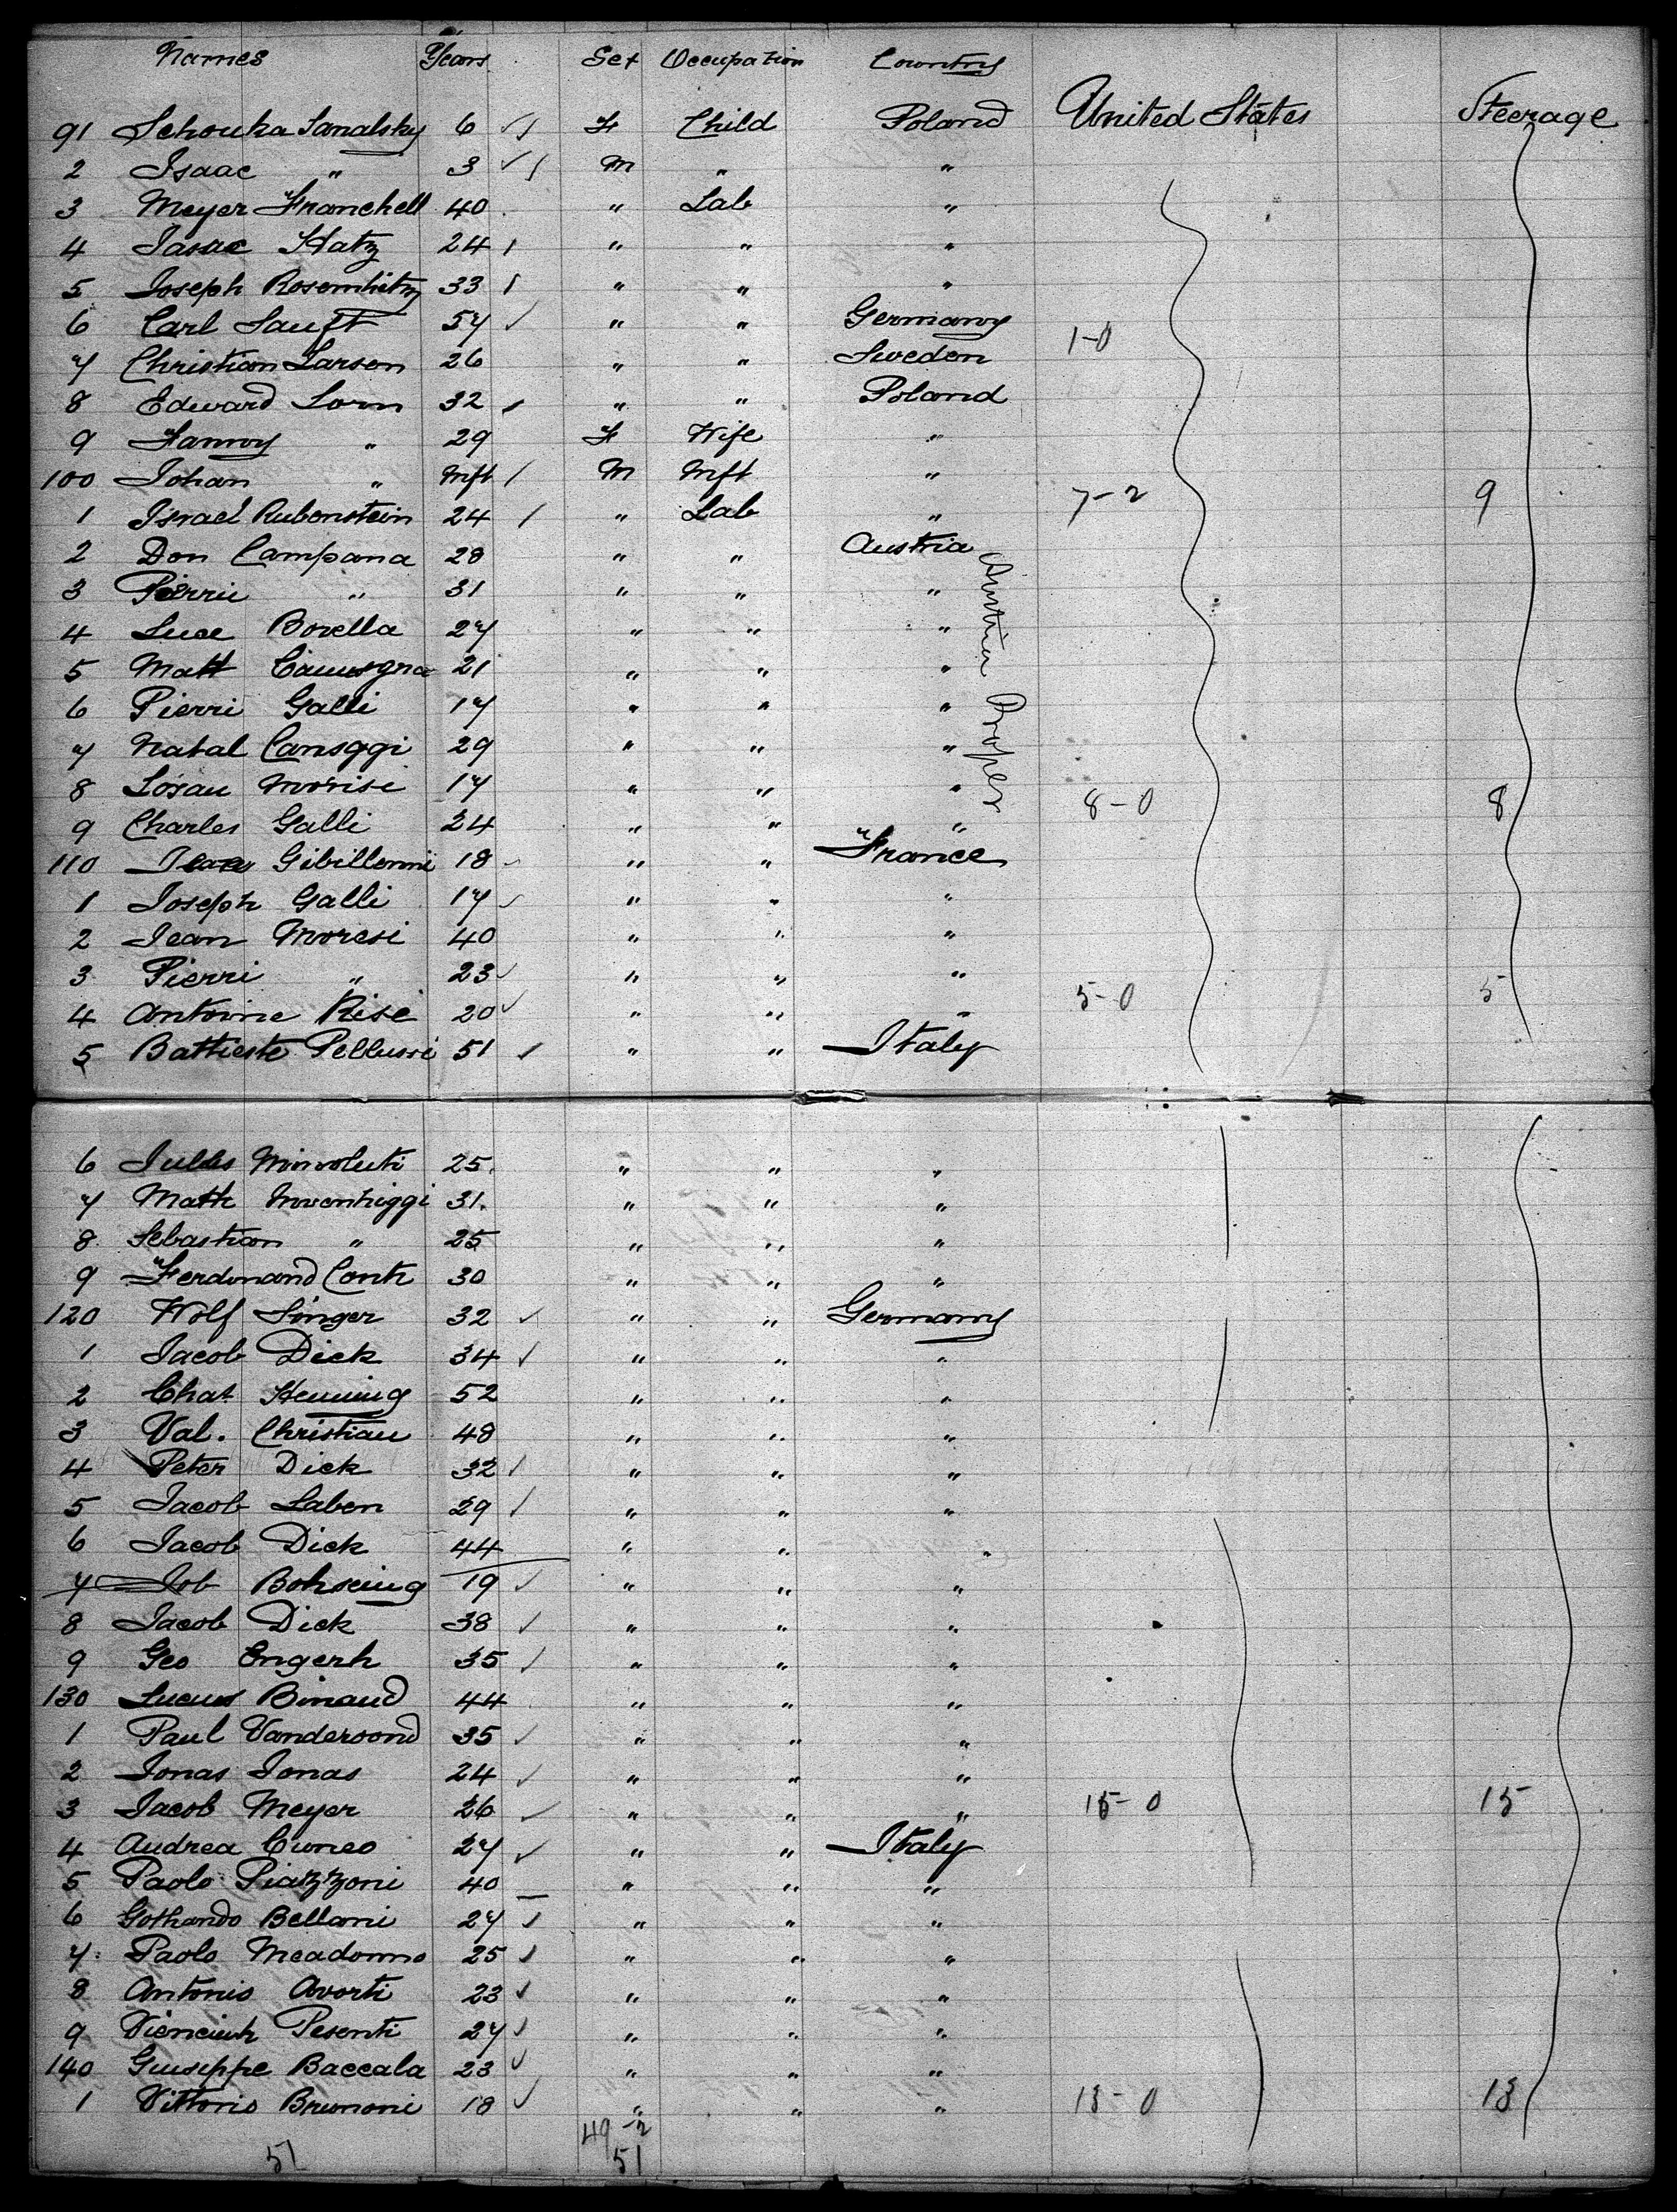 Names Years Sex Occupation Country
United States Steerage
91 Schouka Sanalsky 6 F Child Poland
2 Isaac " 3 M " "
3 Meyer Franchell 40 " Lab "
4 Isaac Katz 24 " " "
5 Joseph 33 " " "
6 Carl Sauft 57 " " Germany
7 Christian Larson 26 " " Sweden 1-0
8 Edward Lorn 32 " " Poland
9 Fanny " 29 F Wife "
100 Johan " Inft M Inft "
1 Israel Rubenstein 24 " Lab " 7-2 9
2 Don Campana 28 " " Austria
3 Pierrie " 31 " " "
4 Luce Borella 27 " " "
5 Matt 21 " " "
6 Pierri Galli 17 " " "
7 Natal Cansggi 29 " " "
8 Losau Morisi 17 " " "
9 Charles Galli 24 " " " 8-0 8
Austria Proper
110 Gibillonni 18 " " France
1 Joseph Galli 17 " " "
2 Jean Moresi 40 " " "
3 Pierri " 23 " " "
4 Antoine Rise 20 " " " 5-0 5
5 Battieste Pellussi 51 " " Italy
6 Jules 25 " " "
7 Math 31 " " "
8 Sebastian " 25 " " "
9 Ferdinand Conti 30 " " "
120 Wolf Singer 32 " " Germany
1 Jacob Dick 34 " " "
2 Chat Henning 52 " " "
3 Val. Christian 48 " " "
4 Peter Dick 32 " " "
5 Jacob Laben 29 " " "
6 Jacob Dick 44 " " "
7 Job Bohseing 19 " " "
8 Jacob Dick 38 " " "
9 Geo Engerh 35 " " "
130 Lucus Binaud 44 " " "
1 Paul Vandersond 35 " " "
2 Jonas Jonas 24 " " "
3 Jacob Meyer 26 " " " 15-0 15
4 Andrea Cuneo 27 " " Italy
5 Paolo Piazzoni 40 " " "
6 Gothardo Bellani 27 " " "
7 Paolo Meadonno 25 " " "
8 Antonio Avorti 23 " " "
9 Pesenti 27 " " "
140 Giuseppe Baccala 23 " " "
1 Vittorio Brunoni 18 " " " 13-0 13
49-2
51 51